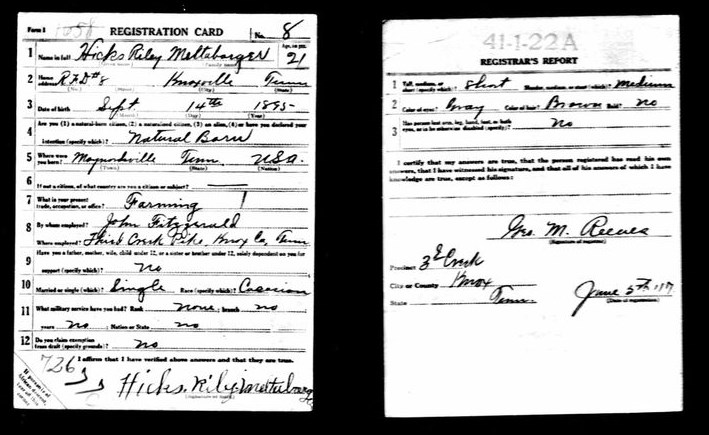 Form 1 1058 REGISTRATION CARD No. 8
1 Name in full Hicks Riley Meltabarger Age, in yrs. 21
(Given name) (Family name)
2 Home address R.F.D #8 Knoxville Tenn
(No.) (Street) (City) (State)
3 Date of birth Sept 14th 1895
(Month) (Day) (Year)
4 Are you (1) a natural-born citizen, (2) a naturalized citizen, (3) an alien, (4) or have you declared your
intention (specify which)? Natural Born
5 Where were you born? Maynardville Tenn. U.S.A.
(Town) (State) (Nation)
6 If not a citizen, of what country are you a citizen or subject?
7 What is your present trade, occupation, or office? Farming
8 By whom employed? John Fitzgerald
Where employed? Third Creek Pike, Knox Co, Tenn
9 Have you a father, mother, wife, child under 12, or a sister or brother under 12, solely dependent on you for
support (specify which)? No
10 Married or single (specify which)? Single Race (specify which)?
11 What military service have you had? Rank none; branch no
years no; Nation or State no
12 Do you claim exemption from draft (specify grounds)? No
I affirm that I have verified above answers and that they are true.
726
Hicks. Riley Meltabarg
(Signature or mark)
If person is of African descent, tear off this corner.
41-1-22A
REGISTRAR'S REPORT
1 Tall, medium, or short (specify which)? Short Slender, medium, or stout (which)? Medium
2 Color of eyes? Gray Color of hair? Brown Bald? No
3 Has person lost arm, leg, hand, foot, or both
eyes, or is he otherwise disabled (specify)? No
I certify that my answers are true, that the person registered has read his own
answers, that I have witnessed his signature, and that all of his answers of which I have
knowledge are true, except as follows:
Geo. M. Reeves
(Signature of registrar)
Precinct 3d Creek
City or County Knox
State Tenn. June 5th '17
(Date of registration)